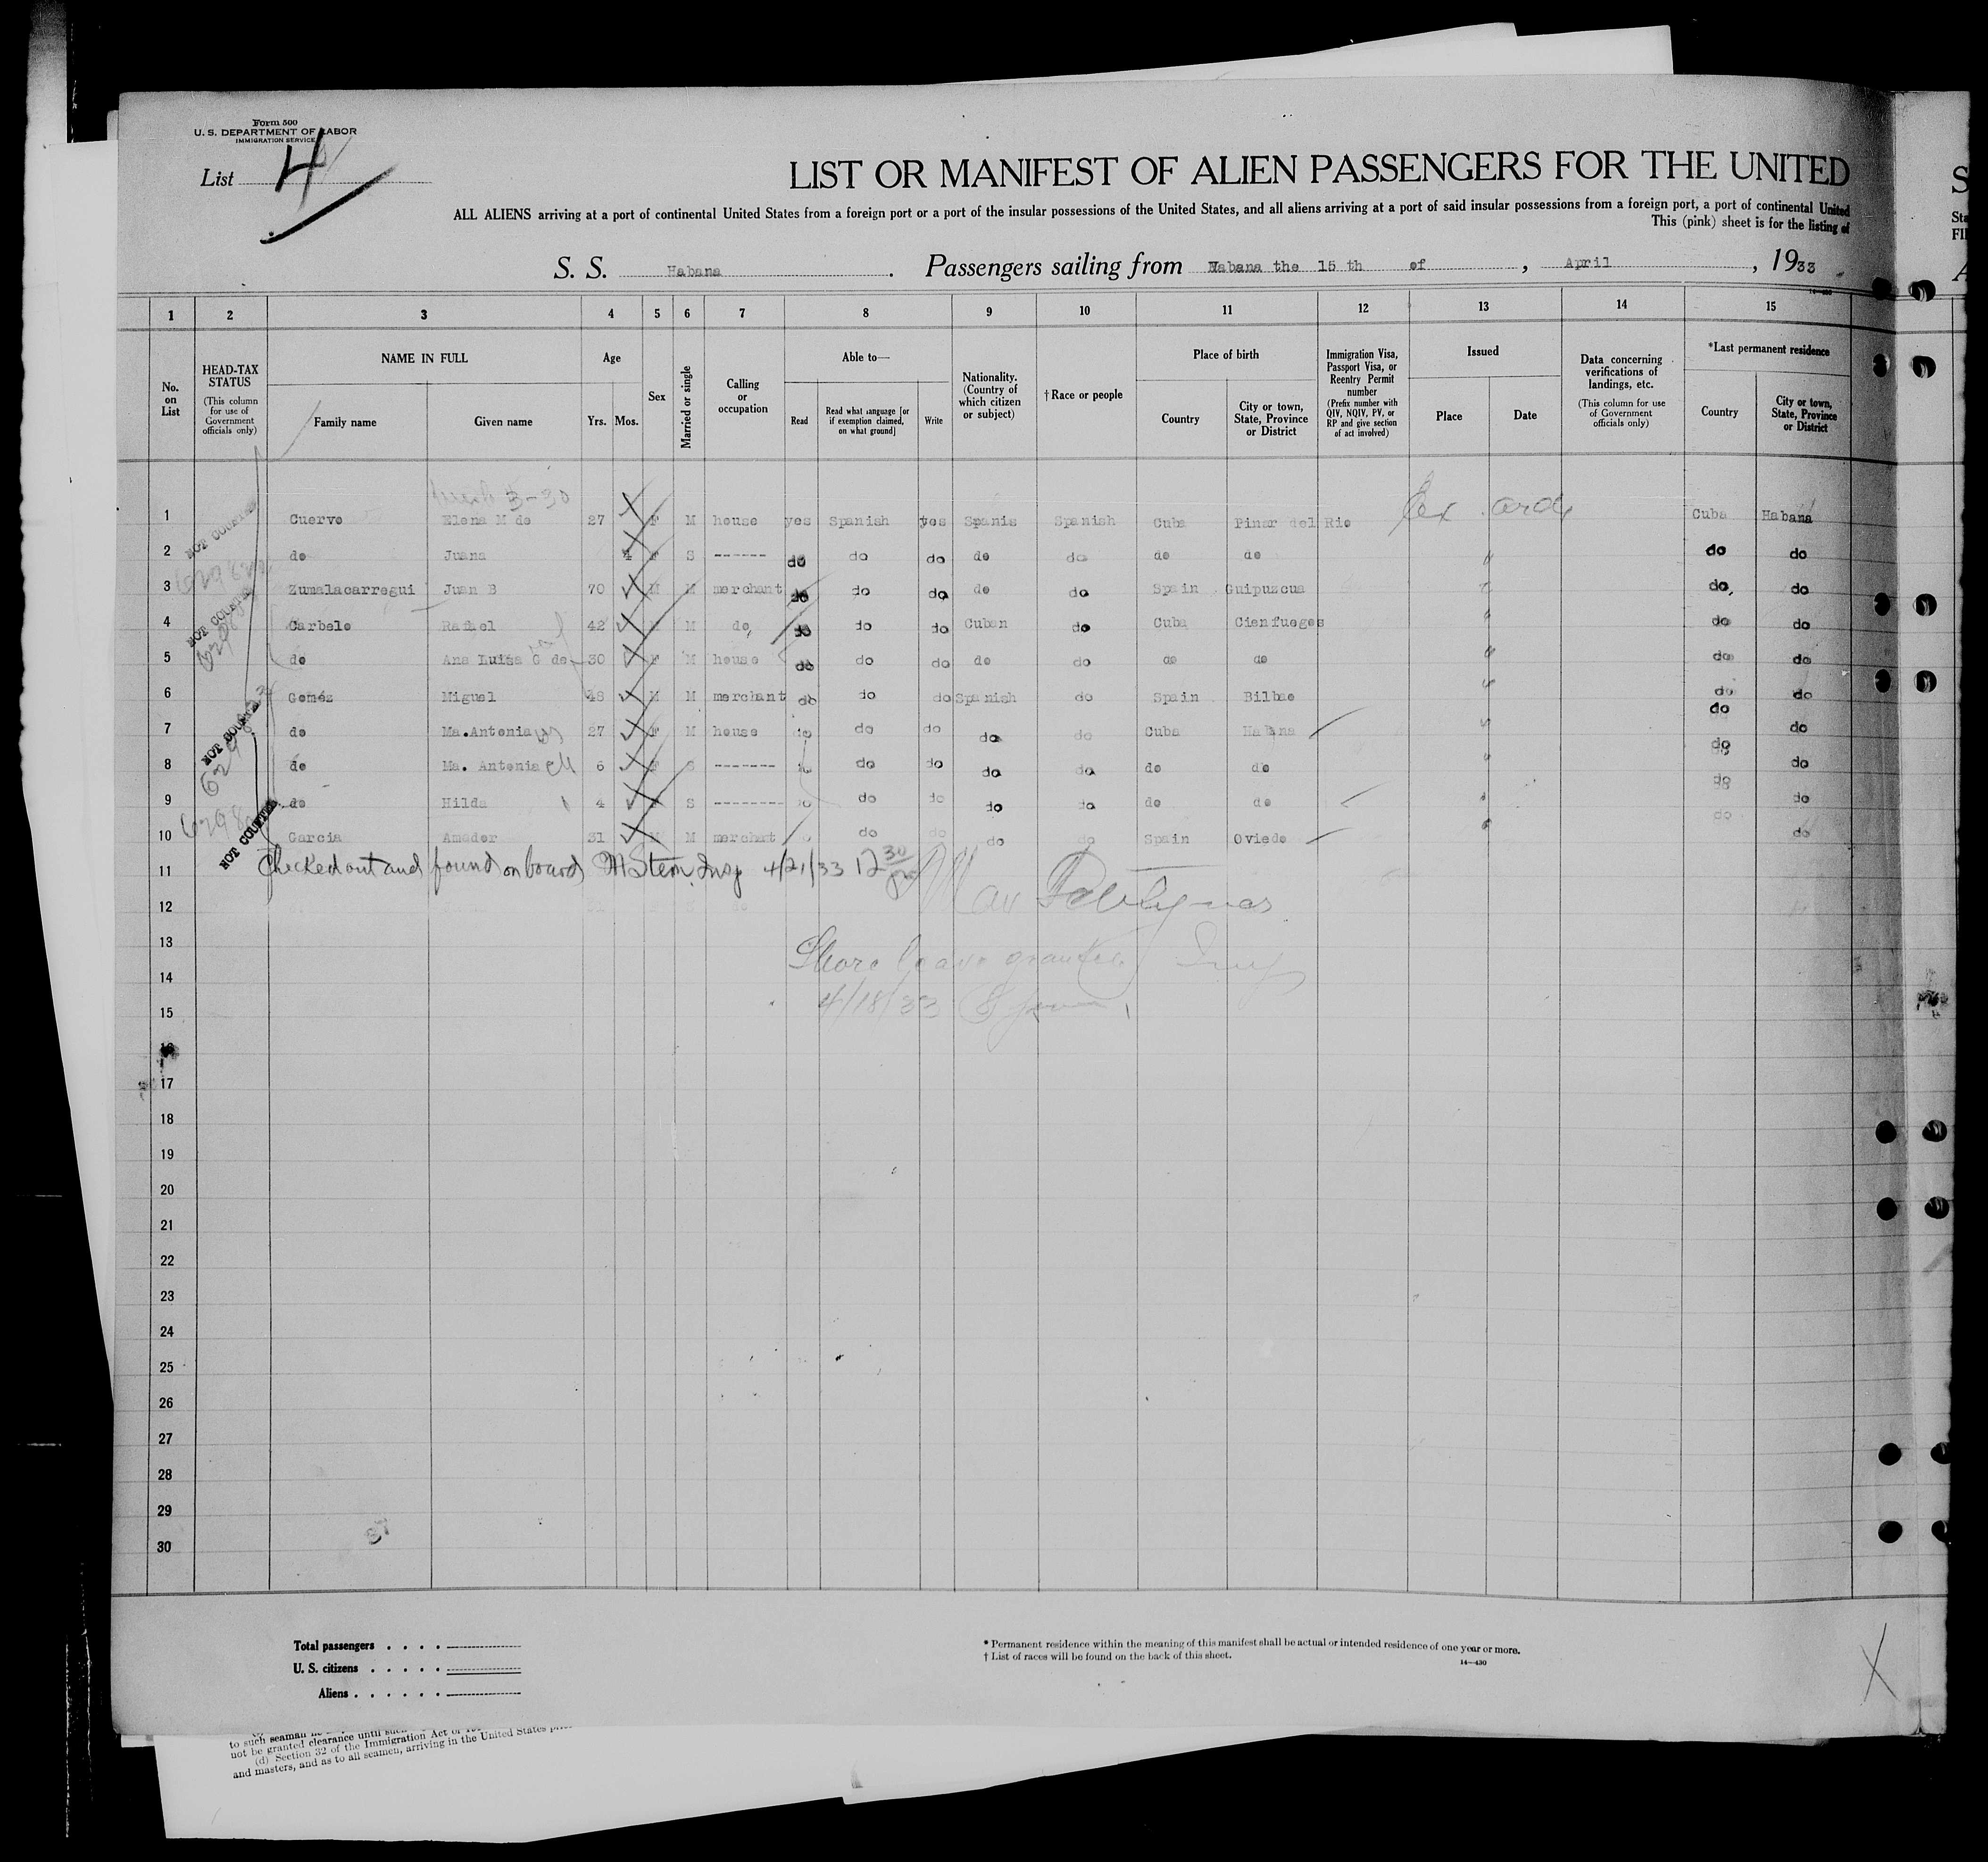 Form 500
U. S. DEPARTMENT OF LABOR
IMMIGRATION SERVICE
List 4
LIST OR MANIFEST OF ALIEN PASSENGERS FOR THE UNITED
ALL ALIENS arriving at a port of continental United States from a foreign port or a port of the insular possessions of the United States, and all aliens arriving at a port of said insular possessions from a foreign port, a port of continental United
This (pink) sheet is for the listing of
S. S. Habana. Passengers sailing from Habana the 15 th of, April, 1933
1 2 3 4 5 6 7 8 9 10 11 12 13 14 15
No. on List
HEAD-TAX STATUS (This column for use of Government officials only)
NAME IN FULL Family name Given name
Age Yrs. Mos.
Sex
Married or single
Calling or occupation
Able to— Read Read what language [or if exemption claimed, on what ground] Write
Nationality. (Country of which citizen or subject)
†Race or people
Place of birth Country City or town, State, Province or District
Immigration Visa, Passport Visa, or Reentry Permit number (Prefix number with QIV, NQIV, PV, or RP and give section of act involved)
Issued Place Date
Data concerning verifications of landings, etc. (This column for use of Government officials only)
*Last permanent residence Country City or town, State, Province or District
1 Cuervo Elena M de 27 F M house yes Spanish yes Spanis Spanish Cuba Pinar del Rio Cuba Habana
2 do Juana 4 F S ------ do do do do do do do do do
3 Zumalacarregui Juan B 70 M M merchant do do do do do Spain Guipuscua do, do
4 Carbelo Rafael 42 M M do, do do do Cuban do Cuba Cienfuegos do do
5 do Ana Luisa G de 30 F M house do do do do do do do do do
6 Gomez Miguel 48 M M merchant do do do Spanish do Spain Bilbao do do
7 do Ma.Antonia 27 F M house do do do do do Cuba Habana do do
8 do Ma. Antonia 6 F S ------- do do do do do do do do do
9 do Hilda 4 F S -------- do do do do do do do do do
10 Garcia Amador 31 M M merchat do do do do Spain Oviedo do do
NOT COUNTED
NOT COUNTED
NOT COUNTED
NOT COUNTED
11 Checked out and found on board M Stern Insp 4/21/33 12 30
12
13
14 Shore leave granted Insp
15 4/18/33
16
17
18
19
20
21
22
23
24
25
26
27
28
29
30
Total passengers
U. S. citizens
Aliens
* Permanent residence within the meaning of this manifest shall be actual or intended residence of one year or more.
† List of races will be found on the back of this sheet.
14—430
to such seaman
not be granted clearance until such
(d) Section 32 of the Immigration Act of
and masters, and as to all seamen, arriving in the United States